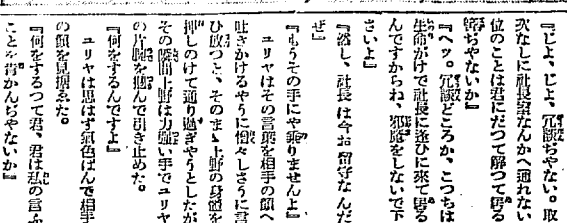 『じよ、じよ、冗談ぢやない。取
次なしに社長室なんかへ通れない
位のことは君にだつて解つて居る
筈ぢやないか』
『ヘッ。冗談どころか、こつちは
生命がけで社長に逢ひに來て居る
んですからね、邪魔をしないで下
さいよ』
『然し、社長は今お留守なんだ
ぜ』
『もうその手にや乘りませんよ』
ユリヤはその言葉を相手の顏へ
吐きかけるやうに憎々しさうに言
ひ放つと、そのまゝ上野の身體を
押しのけて通り過ぎやうとしたが
その瞬間上野は力強い手でユリヤ
の片腕を摑んで引き止めた。
『何をするんですよ』
ユリヤは思はず氣色ばんで相手
の顏を見据ゑた。
『何をするつて君、君は私の言ふ
ことを肯かんぢやないか』